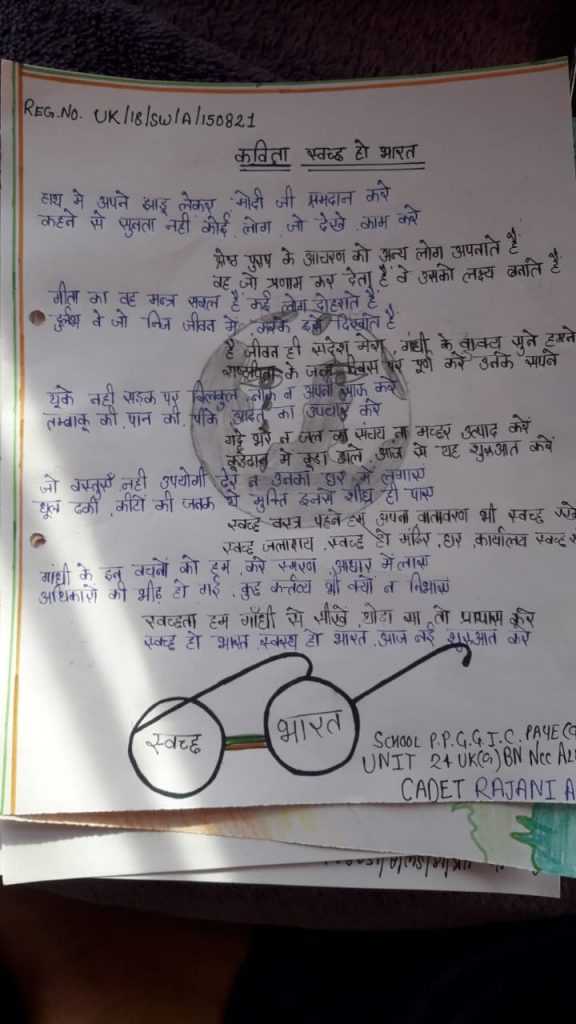 REG.NO. UK/18/SW/A/150821
कविता स्वच्छ हो भारत
हाथ मे अपने झाडू लेकर, मोदी जी श्रमदान करे
कहने से सुनता नही कोई, लोग जो देखे काम करे
श्रेष्ठ पुरुष के आचरण को अन्य लोग अपनाते है
वह जो प्रणाम कर देता है वे उसको लक्ष्य बनाते है
गीता का वह मन्त्र सबल है कई लोग दोहराते है
दुर्लभ वे जो निज जीवन मे, करके इसे दिखाते है
है जीवन ही संदेश मेरा, गांधी के वाक्य सुने हमने
राष्ट्रपिता के जन्म दिवस पर पूर्ण करें उनके सपने
थूके नही सडक पर बिलकुल नाक न अपनी साफ करे
तम्बाकू की, पान की, पीक आदत का उपचार करे
गड्ढे भरे न जल का संचय ना मच्छर उत्पाद करें
कूडेदान मे कूडा डाले, आज से यह शुरुआत करें
जो वस्तुएँ नही उपयोगी देर न उनका घर मे लगाए
धूल ढकी, कीटों की जनक ये मुक्ति इनसे शीघ्र ही पाए
स्वच्छ वस्त्र पहने हम, अपना वातावरण भी स्वच्छ रखे
स्वच्छ जलाशय, स्वच्छ हो मंदिर, घर, कार्यालय स्वच्छ
गांधी के इन वचनों को हम, करे स्मरण, आधार में लाए
अधिकारो की भीड़ हो गई, कुछ कर्त्तव्य भी क्यों न निभाए
स्वच्छता हम गाँधी से सीखें, थोडा सा तो प्रायास करे
स्वच्छ हो भारत, स्वस्थ हो भारत, आज नई शुरुआत करे
स्वच्छ भारत
SCHOOL P.P.G.G.I.C. PAYE
UNIT 24 UK(G) BN NCC
CADET RAJANI A